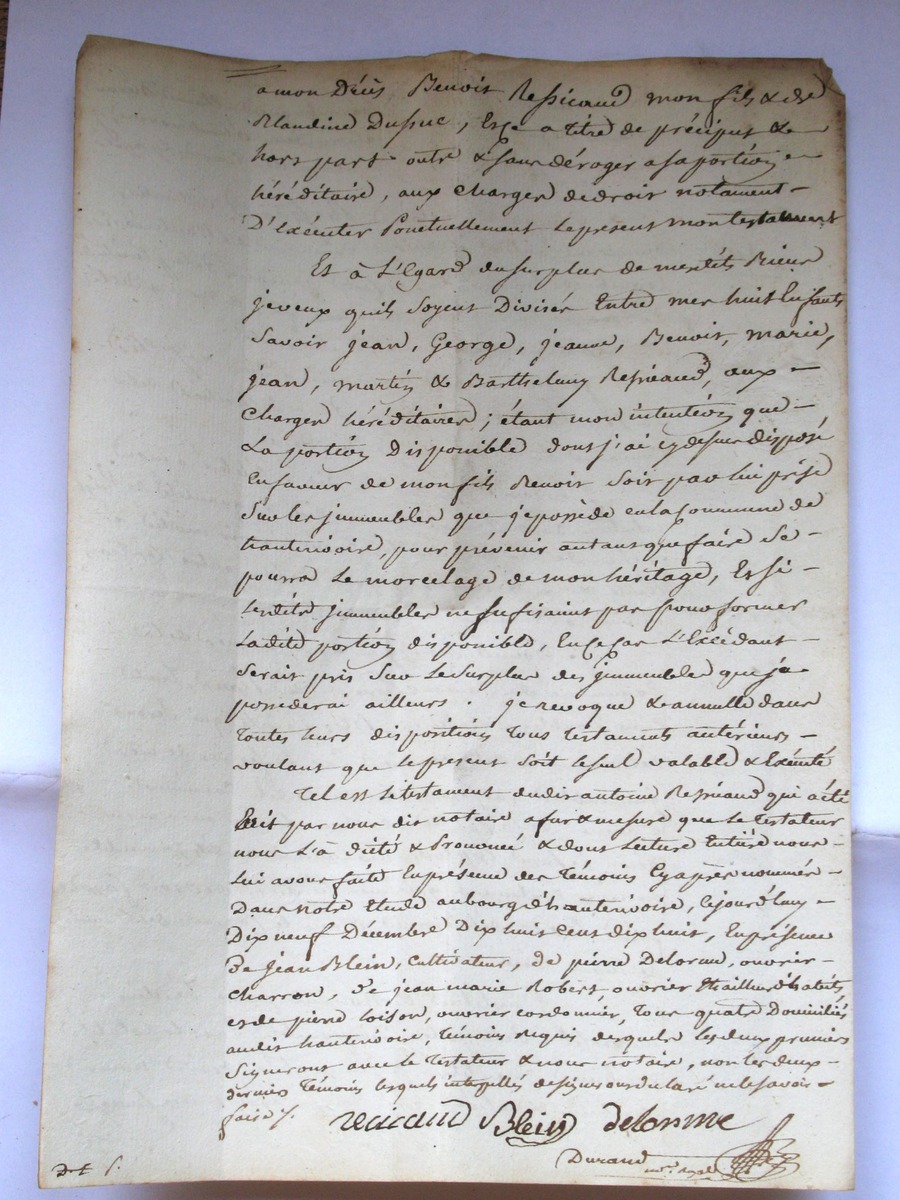 a mon Décès Benoit Ressicaud mon fils & de
Blandine Dussuc, & Ce a titre de préciput &
hors part outre & sans déroger a sa portion
héréditaire, aux charges de droit notament
D'exécuter Ponctuellement le present mon testament
Et à L'Egard du surplus de mesdits Biens
je veux quils soyent Divisés Entre mes huit Enfants
Savoir jean, George, jeanne, Benoit, marie,
jean, martin & Barthelemy Ressicaud, aux
Charges héréditaires; étant mon intention que
La portion disponible dont j'ai cy dessus disposé
En faveur de mon fils Benoit soit par lui prise
Sur les jmmeubles que je possède en la Commune de
hauterivoire, pour prévenir autant que faire se
pourra Le morcelage de mon héritage, Et si
Lesdits jmmeubles ne sufisaint pas pour former
Ladite portion disponible, En ce cas L'Excédant
Serait pris Sur Le Surplus des jmmeubles que je
possederai ailleurs. je revoque & annulle dans
Toutes leurs dispositions Tous Testaments antérieurs
voulant que le present Soit le seul valable & Exécuté
Tel est le testament dudit antoine Ressicaud qui a été
Ecrit par nous dit notaire a fur & mesure que Le Testateur
nous L'à dicté & Prononcé & dont Lecture Entière nous
Lui avons faite En présence des Témoins Cy après nommés
Dans notre Etude au bourg d'hauterivoire, Cejourd'huy
Dix neuf Décembre Dix huit cent dix huit, En présence
De jean Blein, Cultivateur, de pierre Delorme, ouvrier
Charron, De jean marie Robert, ouvrier Tailleur d'habits,
et de pierre Loison, ouvrier cordonnier, Tous quatre Domiciliés
audit hauterivoire, Témoins requis desquels les deux premiers
Signeront avec le Testateur & nous notaire, non les deux
derniers Témoins lesquels interpellés de signer ont déclaré ne le savoir
faire /.
recicaud Blein delorme
Durand